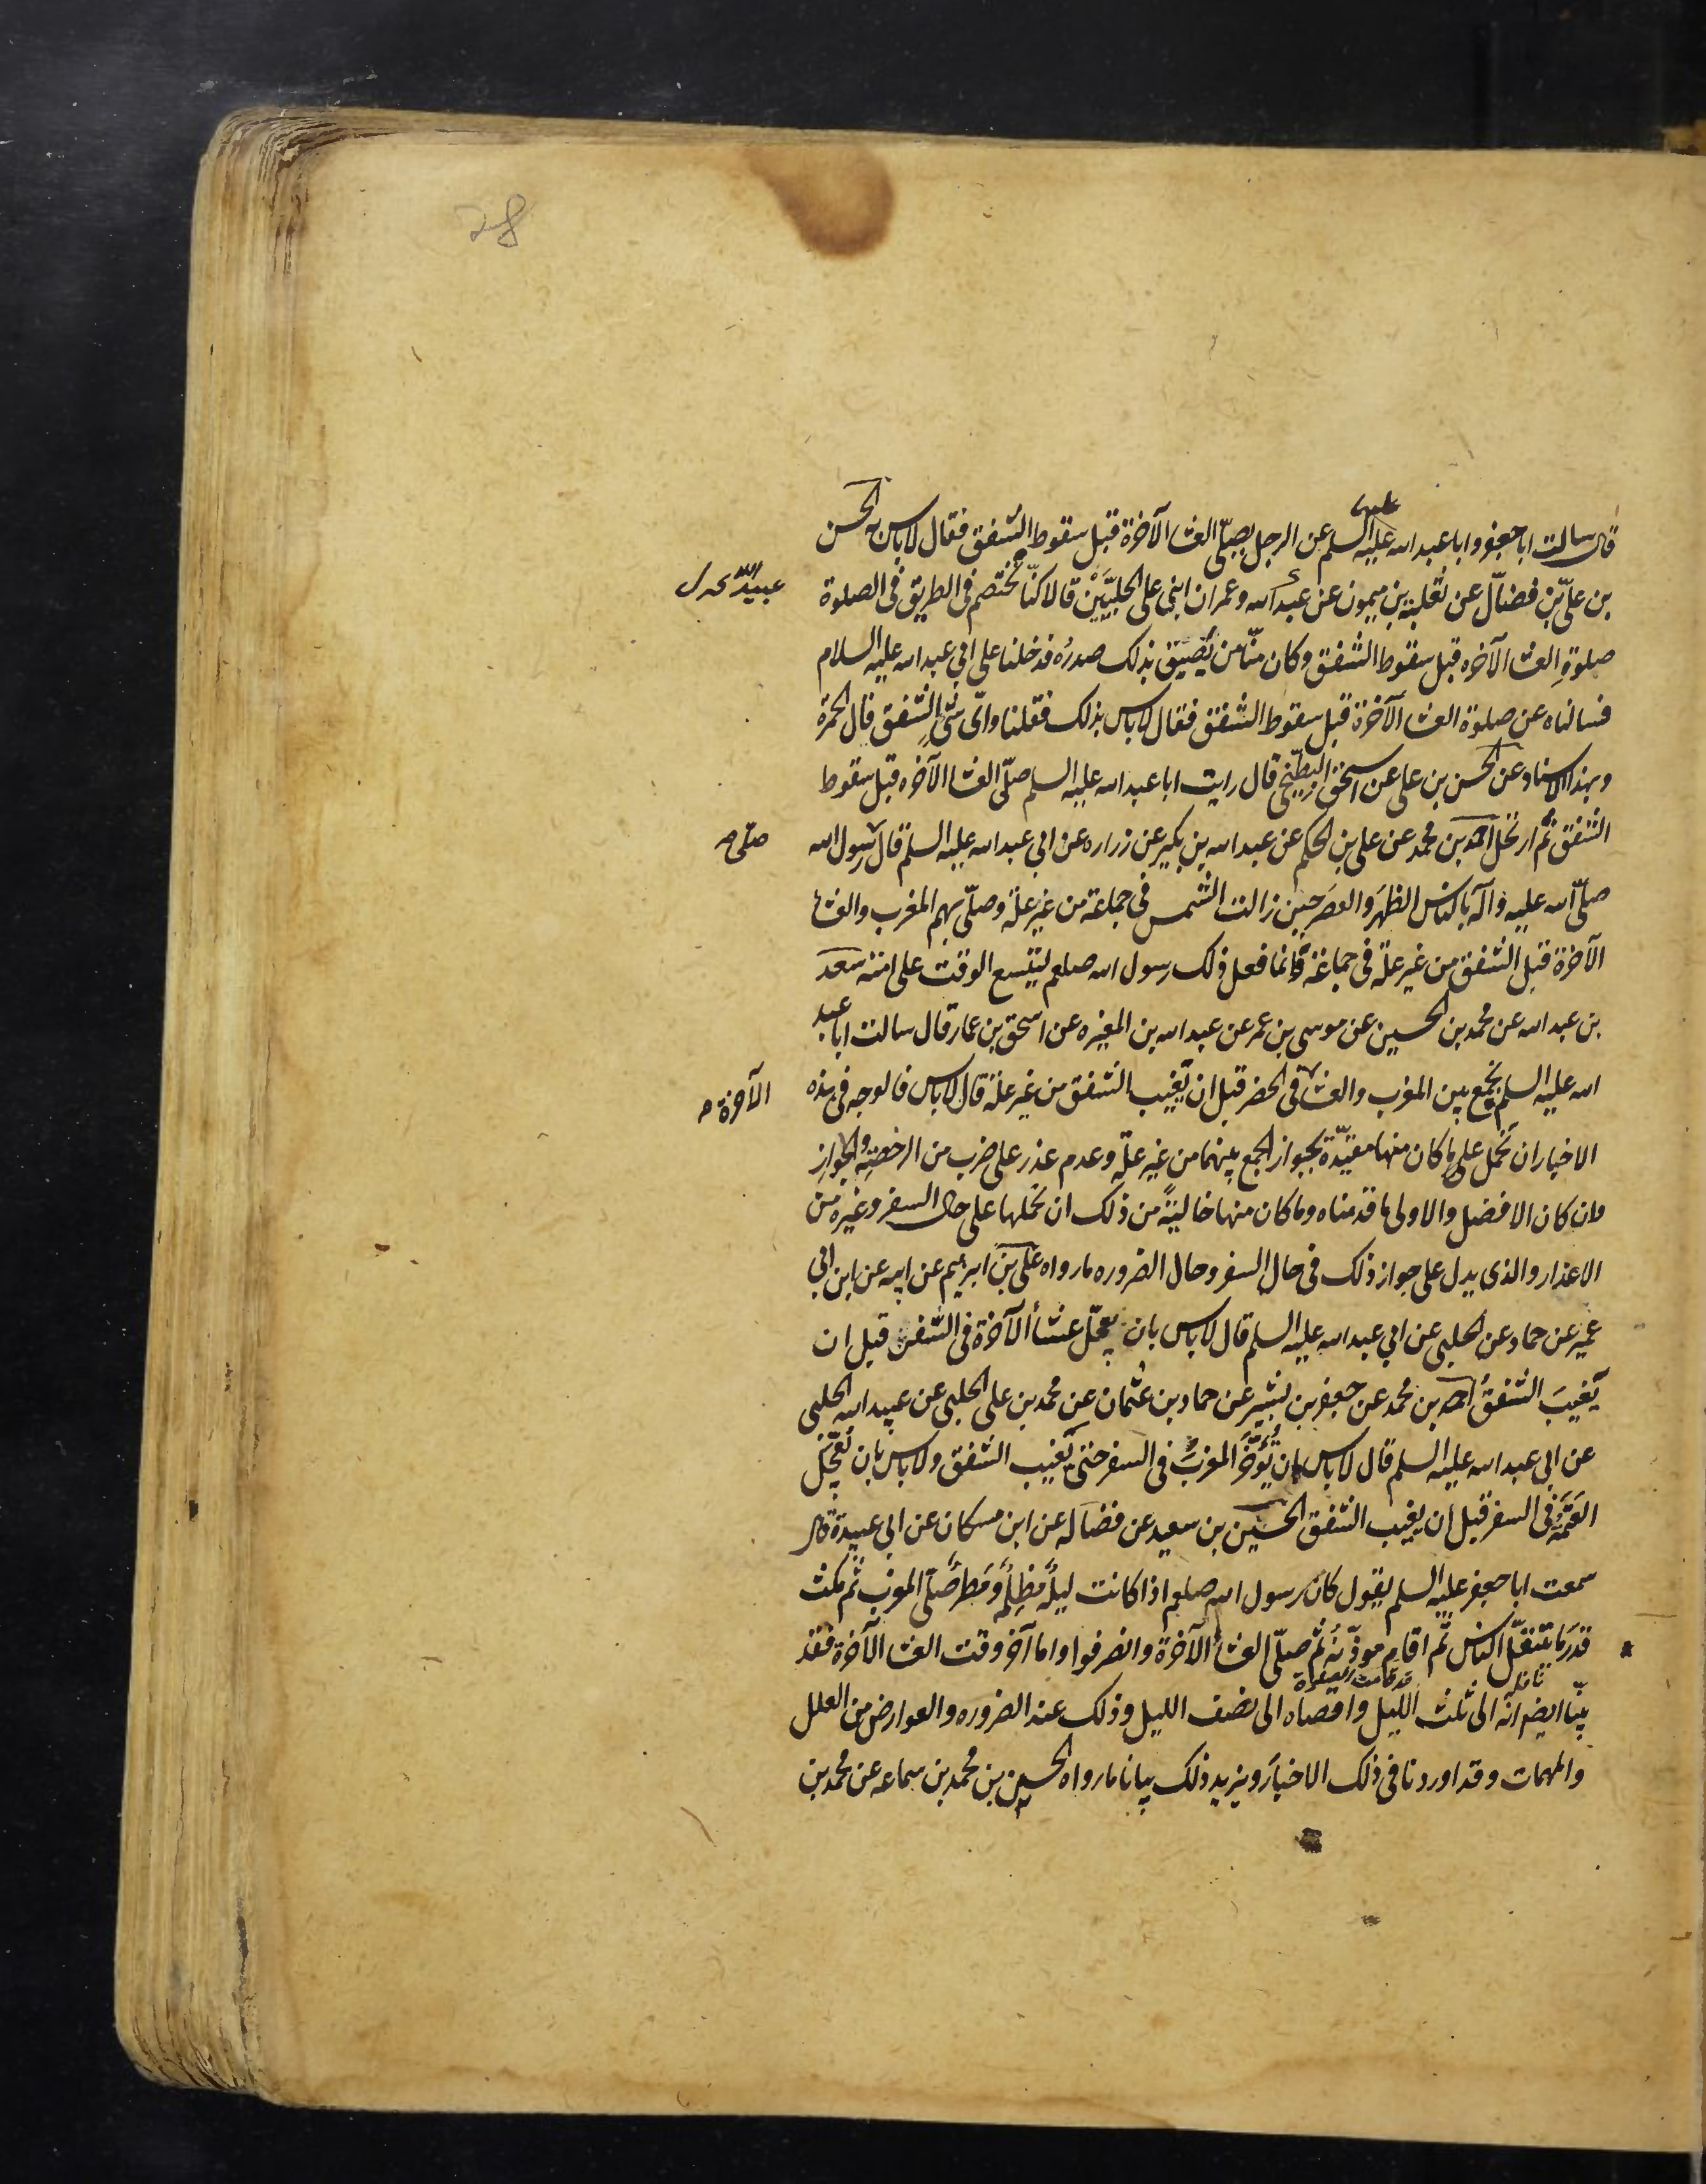 28
عليهما
قال سالت ابا جعفر وابا عبد الله عليه السلم عن الرجل يصلّى العشا الآخرة قبل سقوط الشفق فقال لا باس به الحسن
بن علىّ بن فضّال عن ثعلبة بن ميمون عن عبد الله وعمران ابنى على الحلبيّين قالا كنّا نختصم فى الطريق فى الصلوة
عبيد الله
صلوةِ العشا الآخره قبل سقوط الشفق وكان منّا من يُضيّق بذلك صدرُه فدخلنا على ابى عبد الله عليه السلام
فسالناه عن صلوة العشا الآخرة قبل سقوط الشفق فقال لا باس بذلك فقلنا واىّ شىٍ الشفق قال الحمرة
وبهذا الاسناد عن الحسن بن على عن اسحق البطّيخى قال رايت ابا عبد الله عليه السلم صلّى العشا الآخره قبل سقوط
الشفق ثمّ ارتحل احمد بن محمد عن على بن الحكم عن عبد الله بن بكير عن زراره عن ابى عبد الله عليه السلم قال رسول الله
صلّى
صلّى الله عليه وآله بالناس الظهرَ والعصرَ حين زالت الشمس فى جماعة من غير علّة وصلّى بهم المغرب والعشا
الآخرة قبل الشفق من غير علّة فى جماعة وانما فعل ذلك رسول الله صلعم ليتسع الوقت على امته سعد
بن عبد الله عن محمد بن الحسين عن موسى بن عمر عن عبد الله بن المغيره عن اسحق بن عمار قال سالت ابا عبد
الله عليه السلم نجمع بين المغرب والعشا فى الحضر قبل ان يغيب الشفق من غير علّة قال لا باس فالوجه فى هذه
الآخرة
الاخبار ان نحمل على ما كان منها مقيّدة بجواز الجمع بينهما من غير علّة وعدم عذر على ضرب من الرخصة والجوازِ
وان كان الافضل والاولى ما قدمناه وما كان منها خاليةً من ذلك ان نحملها على حال السفر وغيره من
الاعذار والذى يدل على جواز ذلك فى حال السفر وحال الضروره ما رواه على بن ابرهيم عن ابيه عن ابن ابى
عمير عن حماد عن الحلبى عن ابى عبد الله عليه السلم قال لا باس بان يعجّل عشأ الآخرة فى السفر قبل ان
يغيبَ الشفقُ احمد بن محمد عن جعفر بن بشير عن حماد بن عثمان عن محمد بن على الحلبى عن عبيد الله الحلبى
عن ابى عبد الله عليه السلم قال لا باس بان تُؤخّر المغربُ فى السفر حتى يغيب الشفق ولا باس بان تُعجّل
العَتَمَةُ فى السفر قبل ان يغيب الشفق الحسين بن سعيد عن فضاله عن ابن مسكان عن ابى عبيدة قال
سمعت ابا جعفر عليه السلم يقول كان رسول الله صلعم اذا كانت ليلةٌ مُظلِمةٌ ومَطَرٌ صلّى المغرب ثم مكث
قدرَ ما يتنفّل الناس ثم اقام موذّنُه ثم صلّى العشأ الآخرة وانصرفوا واما آخر وقت العشا الآخرة فقد
بيّنّا ايضم انّه الى ثلث الليل واقصاه الى نصف الليل وذلك عند الضروره والعوارض من العلل
والمهمات وقد اوردنا فى ذلك الاخبارَ ويزيد ذلك بيانا ما رواه الحسين بن محمد بن سماعه عن محمد بن